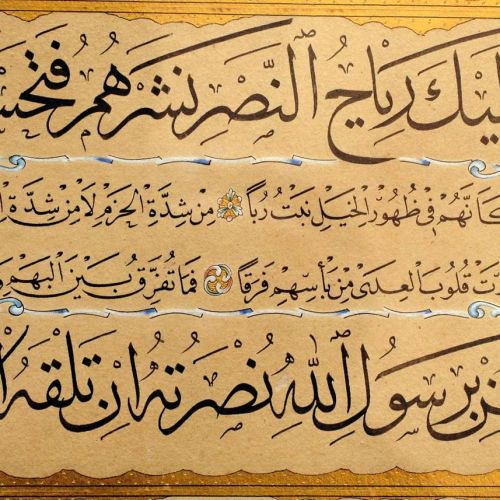 ليك رِيَاحُ النَّصْرِ نَشْرَهُمُ فَتَحْسَ
كَأَنَّهُمْ فِي ظُهُورِ الْخَيْلِ نَبْتُ رُبًا مِنْ شِدَّةِ الْحَزْمِ لَا مِنْ شِدَّةِ
رَتْ قُلُوبُ الْعِدَى مِنْ بَأْسِهِمْ فَرَقًا فَمَا تُفَرِّقُ بَيْنَ الْبَهْمِ وَ
نْ بِرَسُولِ اللّٰهِ نُصْرَتُهُ اِنْ تَلْقَهُ